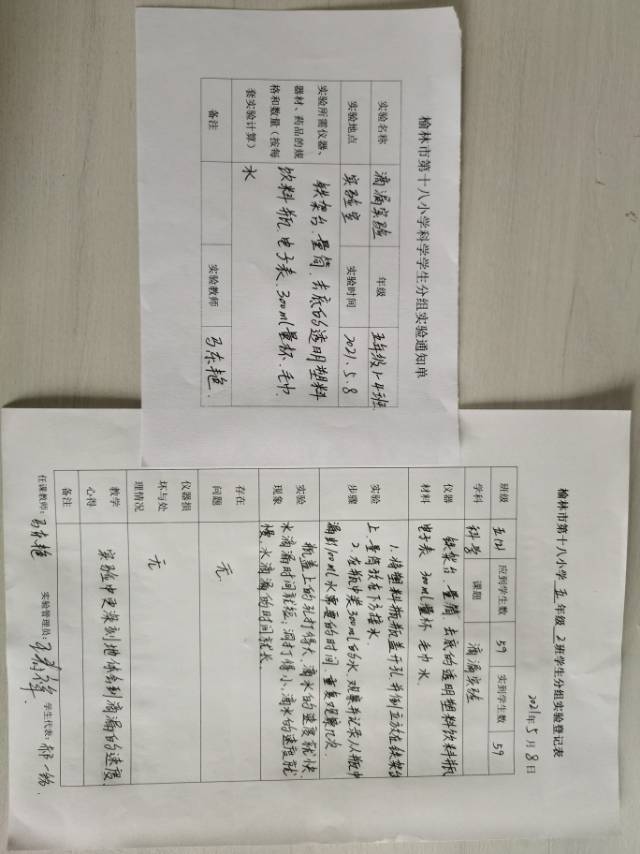 榆林市第十八小学科学学生分组实验通知单
实验名称 滴漏实验 年级 五年级1-4班
实验地点 实验室 实验时间 2021.5.8
实验所需仪器、器材、药品的规格和数量（按每套实验计算）
铁架台、量筒、去底的透明塑料
饮料瓶、电子表、300ml量杯、毛巾、
水
备注 实验教师 马东艳.
榆林市第十八小学 五 年级 2 班学生分组实验登记表
2021年5月8日
班级 五(2) 应到学生数 59 实到学生数 59
学科 科学 课题 滴漏实验
仪器材料
铁架台、量筒、去底的透明塑料饮料瓶
电子表 300ml量杯 毛巾 水.
实验步骤
1.将塑料瓶瓶盖开孔,并倒立放在铁架台
上,量筒放在下方接水.
2.在瓶中装300ml的水,观察并记录从瓶中
漏到100ml水需要的时间,重复观察几次.
实验现象
瓶盖上的孔打得大,滴水的速度就快
水滴漏时间就短,洞打得小,滴水的速度就
慢,水滴漏的时间就长.
存在问题 无.
仪器损坏与处理情况 无
教学心得 实验中更深刻地体会到滴漏的速度.
备注
任课教师: 马东艳 实验管理员: 学生代表: